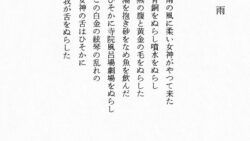 雨
南の風に柔い女神がやつて来た
青銅をぬらし噴水をぬらし
燕の腹と黄金の毛をぬらした
潮を抱き砂をなめ魚を飲んだ
ひそかに寺院風呂場劇場をぬらし
この白金の絃琴の乱れの
女神の舌はひそかに
我が舌をぬらした